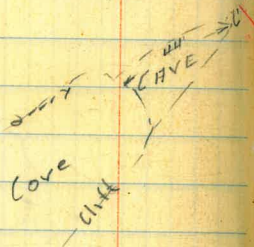 CAVE
Cove
Cliff